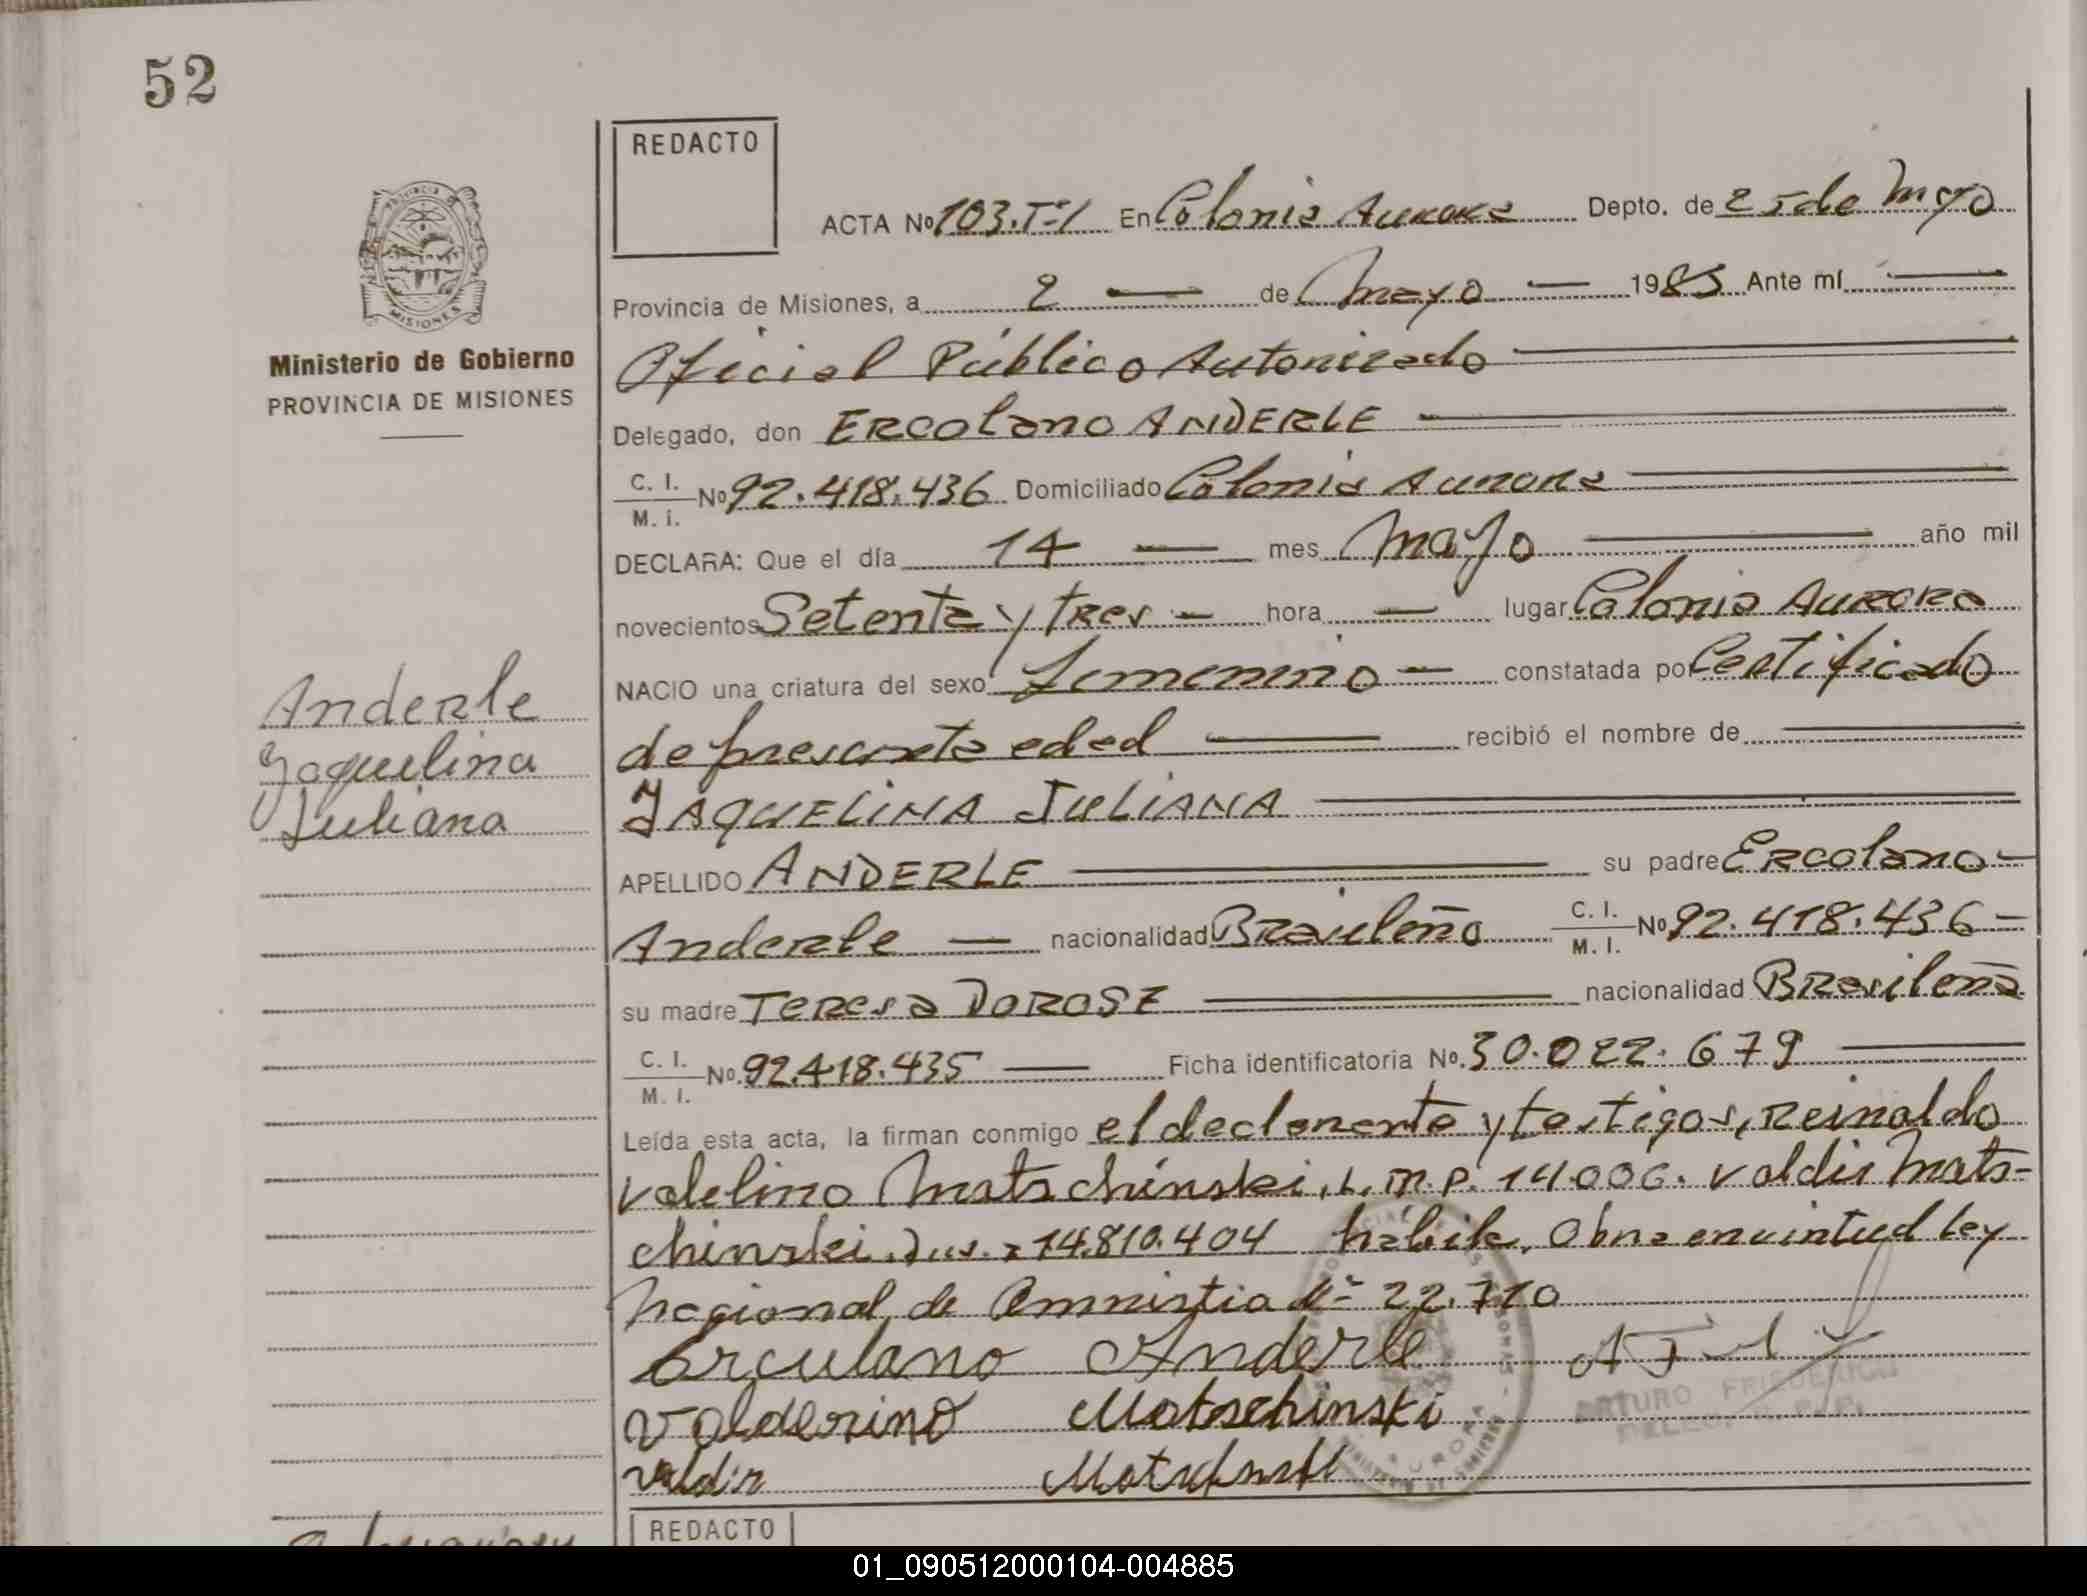 52
REDACTO
ACTA Nº 103.Tº1 En Colonia Aurora Depto. de 25 de Mayo
Provincia de Misiones, a 2 — de Mayo — 1985 Ante mí —
Oficial Público Autorizado
Ministerio de Gobierno
PROVINCIA DE MISIONES
Delegado, don ERCOLANO ANDERLE
C. I. / M. I. Nº 92.418.436 Domiciliado Colonia Aurora
DECLARA: Que el día 14 — mes Mayo — año mil
novecientos Setenta y tres — hora — lugar Colonia Aurora
NACIO una criatura del sexo femenino — constatada por Certificado
de presunta edad — recibió el nombre de —
JAQUELINA JULIANA
Anderle
Jaquelina
Juliana
APELLIDO ANDERLE — su padre Ercolano —
Anderle — nacionalidad Brasileño C. I. / M. I. Nº 92.418.436 —
su madre TERESA DOROSE — nacionalidad Brasileña
C. I. / M. I. Nº. 92.418.435 — Ficha identificatoria Nº. 30.022.679 —
Leída esta acta, la firman conmigo el declarante y testigos, Reinaldo
Valelino Matschinski, L.M.P. 14.006. Valdir Mats-
chinski 14.810.404 hábiles, Obra en virtud Ley
Nacional de Amnistia Nº 22.710
Erculano Anderle
Valderino Matschinski
ARTURO FRIEDERICH
Valdir
REDACTO
01_090512000104-004885